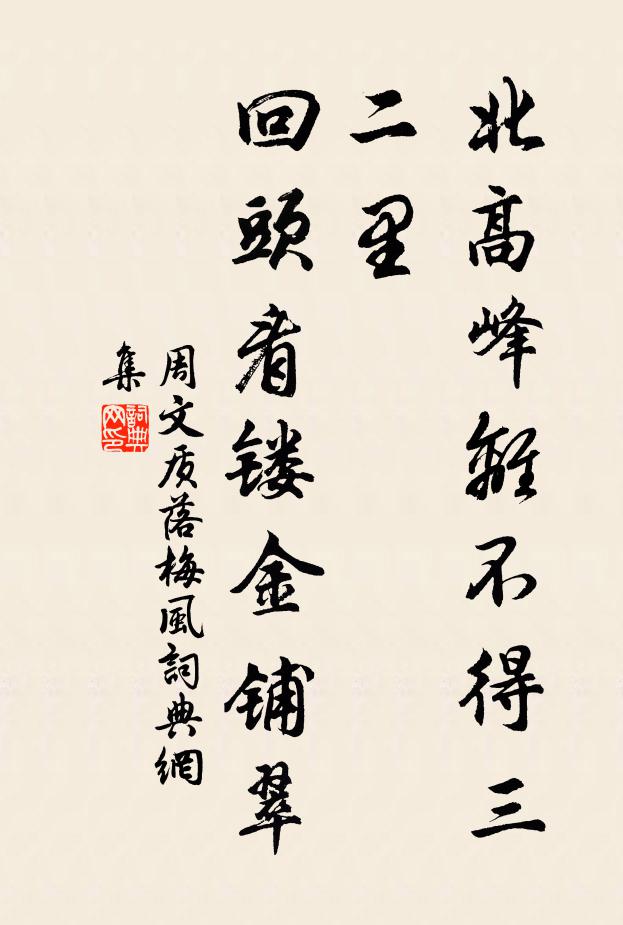 北高峰離不得三
二里
回頭看镂金铺翠
周文质落梅風詞典網
集
詞典
网印